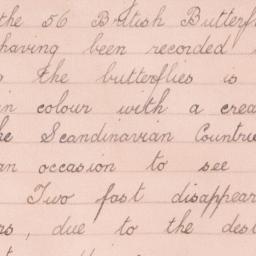 the 56 British Butterf
having been recorded
the butterflies is
in colour with a crea
he Scandinavian Countrie
an occasion to see
Two fast disappear
rs, due to the des